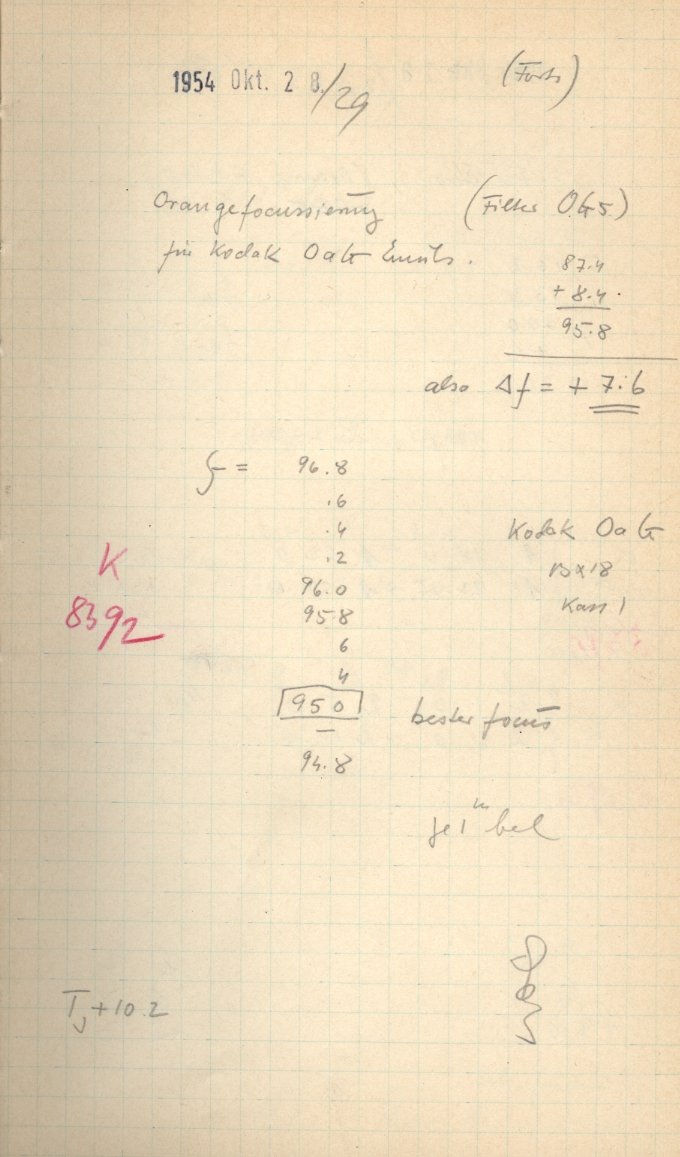 1954 Okt. 28./29
(Forts)
Orangefocussierung (Filter OG5)
für Kodak OaG Emuls.
87.4
+ 8.4
95.8
also Δf = + 7.6
f = 96.8
.6
.4
.2
96.0
95.8
6
4
95 0 bester focus
—
94.8
Kodak OaG
13x18
Kass 1
K
8392
je 1ᵐ bel
T, +10.2